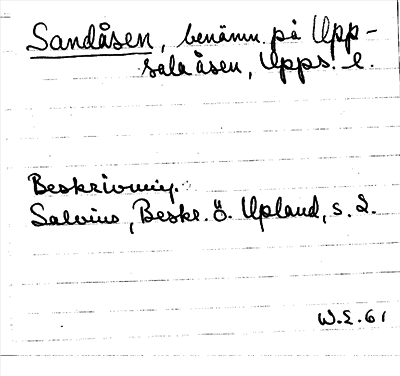 Sandåsen, benämn. på Upp-
salaåsen, Upps. l.
Beskrivning.
Salvius, Beskr. ö. Upland, s. 2.
W.E. 61